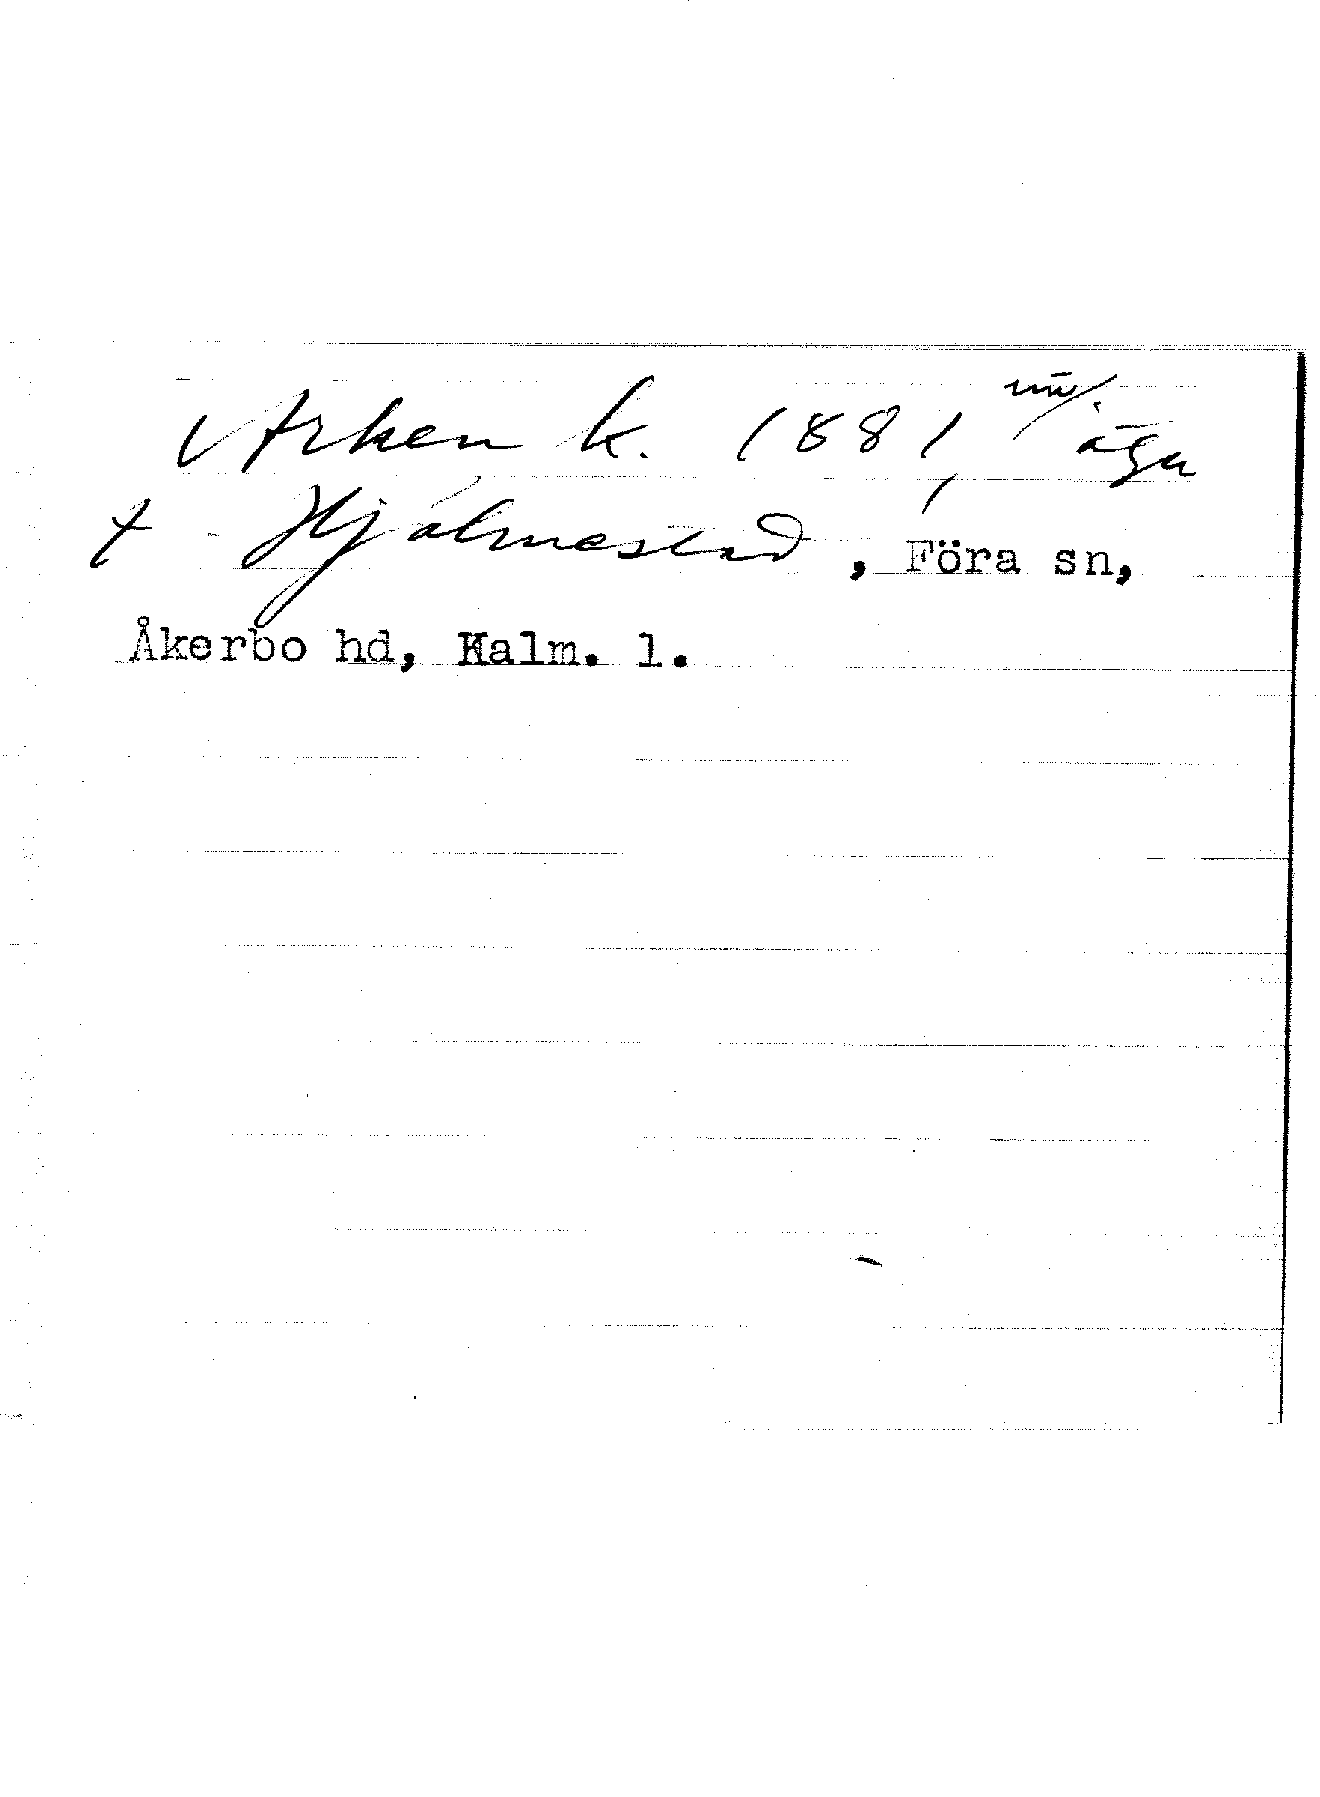 Arken k. 1881,
t Hjälmestad, Föra sn,
Åkerbo hd, Kalm. l.